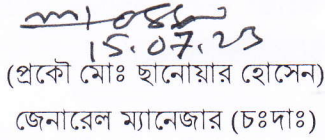 15.07.23
(প্রকৌ মোঃ ছানোয়ার হোসেন)
জেনারেল ম্যানেজার (চঃদাঃ)